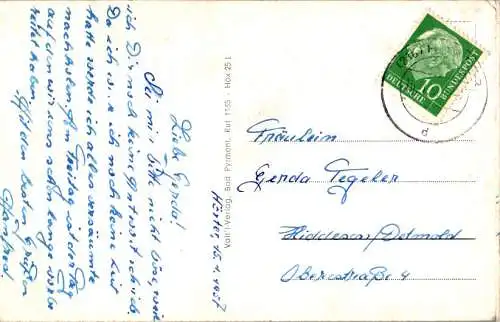 Höxter, 15. 1. 1957
Liebe Gerda!
Sei mir bitte nicht böse, weil
ich Dir noch keine Antwort schrieb.
Da ich noch keine Zeit
hatte werde ich alles versäumte
nachholen. Am Freitag ist der Tag
auf den wir uns schon lange vorbe
reitet haben.
Mit den besten Grüßen
Manfred.
Vahl'l-Verlag, Bad Pyrmont, Ruf 1155 - Hox 25 L
DEUTSCHE BUNDESPOST
10
d
Fräulein
Gerda Tegeler
Hiddesen/Detmold
Oberestraße 4